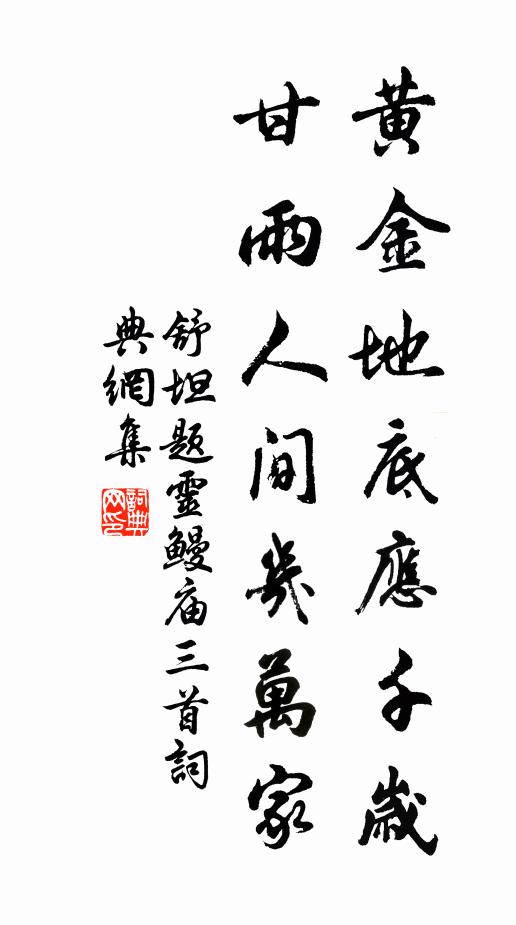 黃金地底應千歲
甘雨人間幾萬家
舒坦題靈鰻庙三首詞
典網集
詞典网印